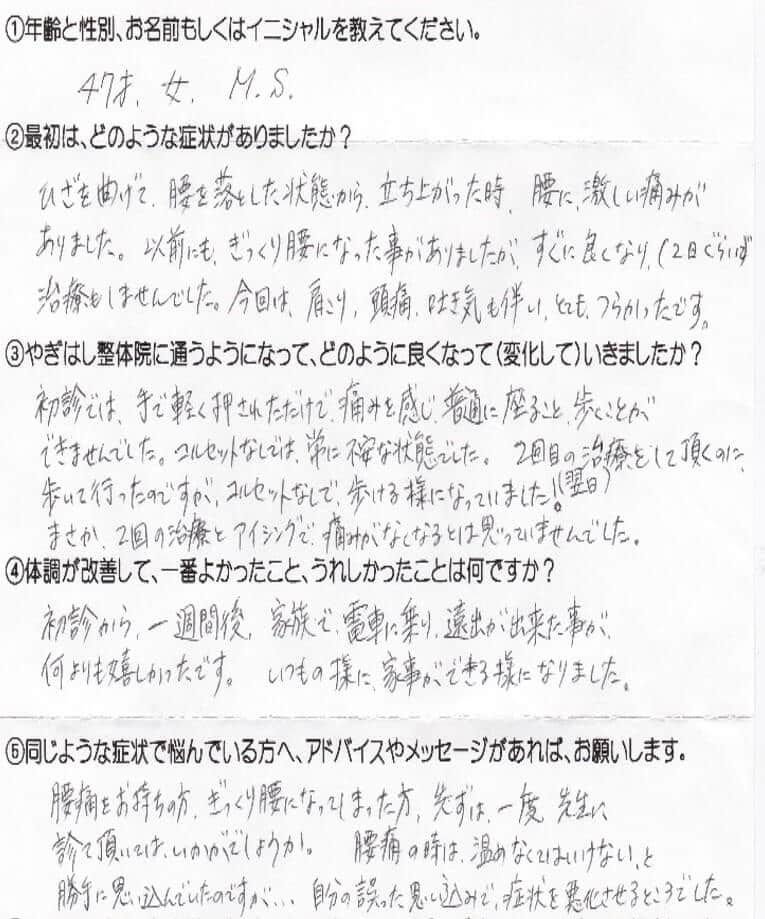 ①年齢と性別、お名前もしくはイニシャルを教えてください。
47才、女、M.S.
②最初は、どのような症状がありましたか？
ひざを曲げて、腰を落とした状態から、立ち上がった時、腰に、激しい痛みが
ありました。以前にも、ぎっくり腰になった事がありましたが、すぐに良くなり、(2日ぐらい)で
治療もしませんでした。今回は、肩こり、頭痛、吐き気も伴い、とても、つらかったです。
③やぎはし整体院に通うようになって、どのように良くなって(変化して)いきましたか？
初診では、手で軽く押されただけで、痛みを感じ、普通に座ること、歩くことが
できませんでした。コルセットなしでは、常に不安な状態でした。2回目の治療をして頂くのに、
(翌日)
歩いて行ったのですが、コルセットなしで、歩ける様になっていました!
まさか、2回の治療とアイシングで、痛みがなくなるとは思っていませんでした。
④体調が改善して、一番よかったこと、うれしかったことは何ですか？
初診から、一週間後、家族で、電車に乗り、遠出が出来た事が、
何よりも嬉しかったです。 いつもの様に、家事ができる様になりました。
⑤同じような症状で悩んでいる方へ、アドバイスやメッセージがあれば、お願いします。
腰痛をお持ちの方、ぎっくり腰になってしまった方、先ずは、一度、先生に
診て頂いては、いかがでしょうか。 腰痛の時は、温めなくてはいけない、と
勝手に思い込んでいたのですが… 自分の誤った思い込みで、症状を悪化させるところでした。